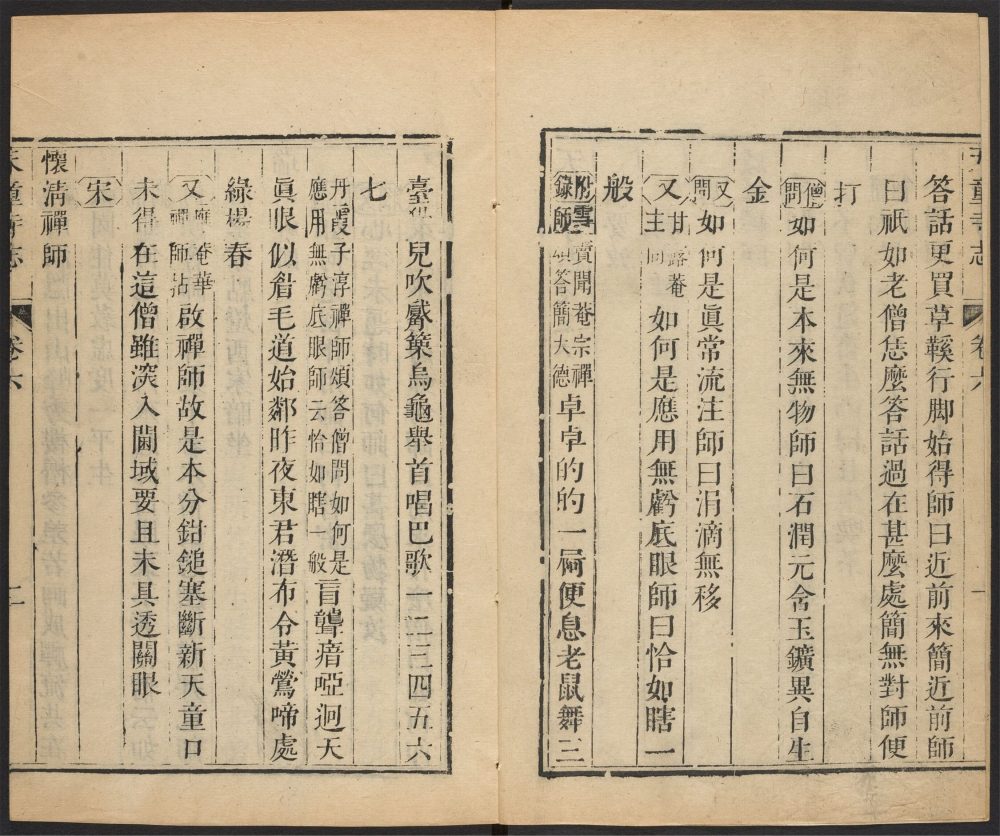 天童寺志 卷六 一
答話更買草鞵行脚始得師曰近前來簡近前師
曰祇如老僧恁麽答話過在甚麽處簡無對師便
打
僧問如何是本來無物師曰石潤元含玉鑛異自生
金
又問如何是眞常流注師曰涓滴無移
又甘露菴主問如何是應用無虧底眼師曰恰如瞎一
般
附錄雪竇聞菴宗禪師頌答簡大德卓卓的的一局便息老鼠舞三
臺 兒吹觱篥烏龜舉首唱巴歌一二三四五六
七
丹霞子淳禪師頌答僧問如何是應用無虧底眼師云恰如瞎一般盲聾瘖啞迥天
眞眼似眉毛道始鄰昨夜東君潛布令黃鶯啼處
綠楊春
又應菴華禪師拈啟禪師故是本分鉗鎚塞斷新天童口
未得在這僧雖深入閫域要且未具透關眼
宋
懷淸禪師
天童寺志 卷六 二